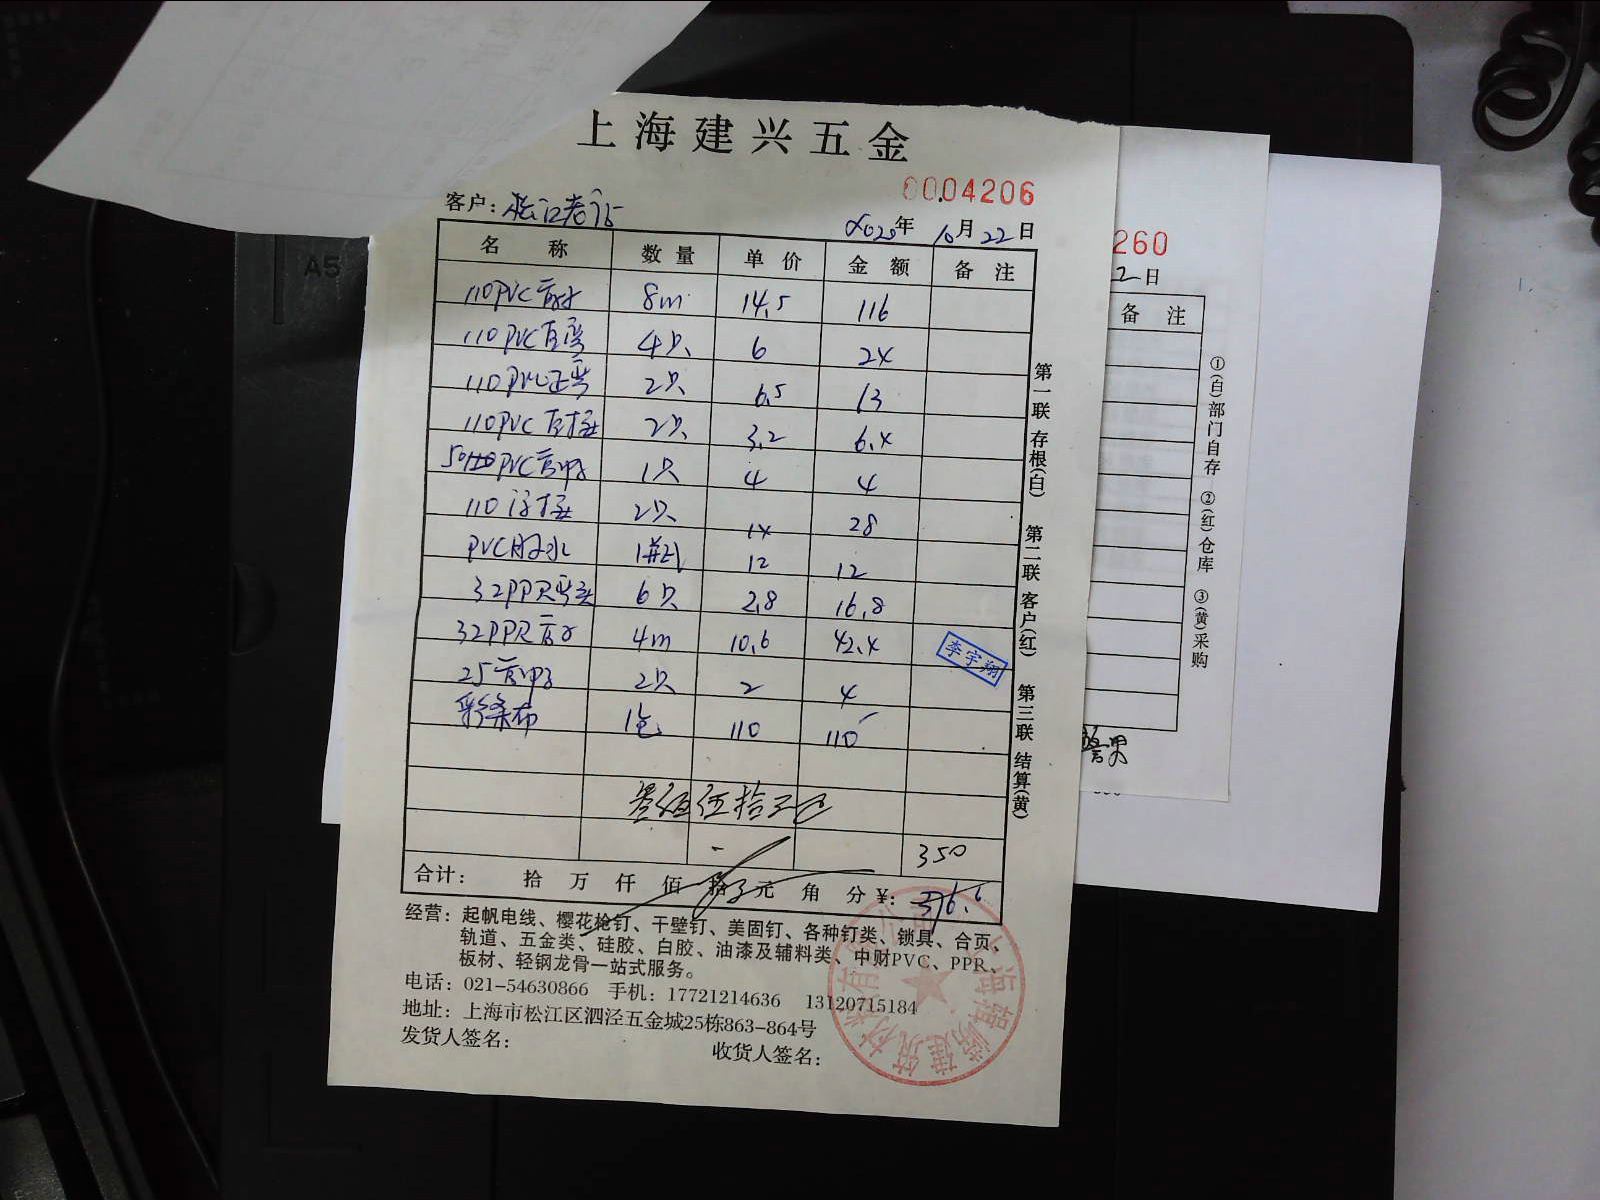 上海建兴五金
0004206
客户：松江老
2020年 10月22日
名称 数量 单价 金额 备注
110PVC管 8m 14.5 116
110PVC直弯 4只 6 24
110PVC正弯 2只 6.5 13
110PVC直接 2只 3.2 6.4
50PVC管 1只 4 4
110 接 2只 14 28
PVC胶水 1瓶 12 12
32PPR弯头 6只 2.8 16.8
32PPR管 4m 10.6 42.4
25管 2只 2 4
彩条布 1包 110 110
李宇翔
叁佰伍拾元
350
合计： 拾 万 仟 佰 拾 元 角 分 ¥: 376.6
第一联 存根(白) 第二联 客户(红) 第三联 结算(黄)
经营：起帆电线、樱花枪钉、干壁钉、美固钉、各种钉类、锁具、合页、
轨道、五金类、硅胶、白胶、油漆及辅料类、中财PVC、PPR、
板材、轻钢龙骨一站式服务。
电话：021-54630866 手机：17721214636 13120715184
地址：上海市松江区泗泾五金城25栋863-864号
发货人签名： 收货人签名：
260
2日
备注
①(白)部门自存 ②(红)仓库 ③(黄)采购
A5